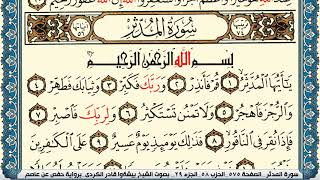 وأعظم أجرا واستغفروا الله إن الله غفور رحيم
سُورَةُ المُدَّثِّرِ
بِسْمِ ٱللَّهِ ٱلرَّحْمَٰنِ ٱلرَّحِيمِ
يَٰٓأَيُّهَا ٱلْمُدَّثِّرُ ١ قُمْ فَأَنذِرْ ٢ وَرَبَّكَ فَكَبِّرْ ٣ وَثِيَابَكَ فَطَهِّرْ ٤
وَٱلرُّجْزَ فَٱهْجُرْ ٥ وَلَا تَمْنُن تَسْتَكْثِرُ ٦ وَلِرَبِّكَ فَٱصْبِرْ ٧
فَإِذَا نُقِرَ فِي ٱلنَّاقُورِ ٨ فَذَٰلِكَ يَوْمَئِذٍ يَوْمٌ عَسِيرٌ ٩ عَلَى ٱلْكَٰفِرِينَ
سورة المدثر . الصفحة ٥٧٥ . الحزب ٥٨ . الجزء ٢٩ . بصوت الشيخ بيشةوا قادر الكردى . برواية حفص عن عاصم